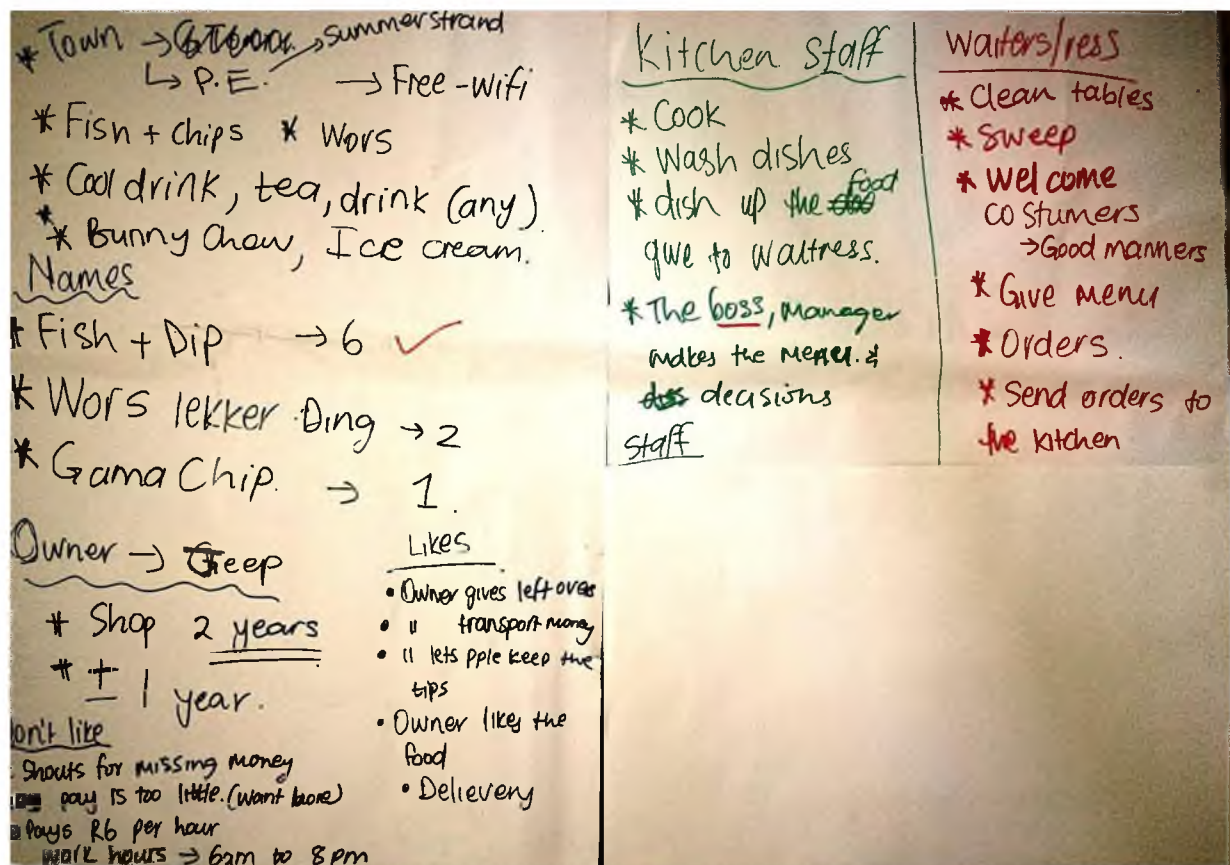 * Town → summerstrand
↳ P.E. → Free-wifi
* Fish + chips * Wors
* Cool drink, tea, drink (any)
*
* Bunny Chow, Ice cream.
Names
* Fish + Dip → 6 ✓
* Wors lekker Ding → 2
* Gama Chip. → 1.
Owner → Geep
* Shop 2 years
* ± 1 year.
Don't like
Shouts for missing money
pay is too little. (want more)
Pays R6 per hour
work hours → 6am to 8pm
Likes
• Owner gives left overs
• " transport money
• " lets pple keep the
tips
• Owner likes the
food
• Delievery
Kitchen Staff
* Cook
* Wash dishes
* dish up the food
give to waitress.
* The boss, manager
makes the menu. &
decisions
staff
Waiters/ress
* Clean tables
* Sweep
* Welcome
costumers
→ Good manners
* Give menu
* Orders.
* Send orders to
the kitchen